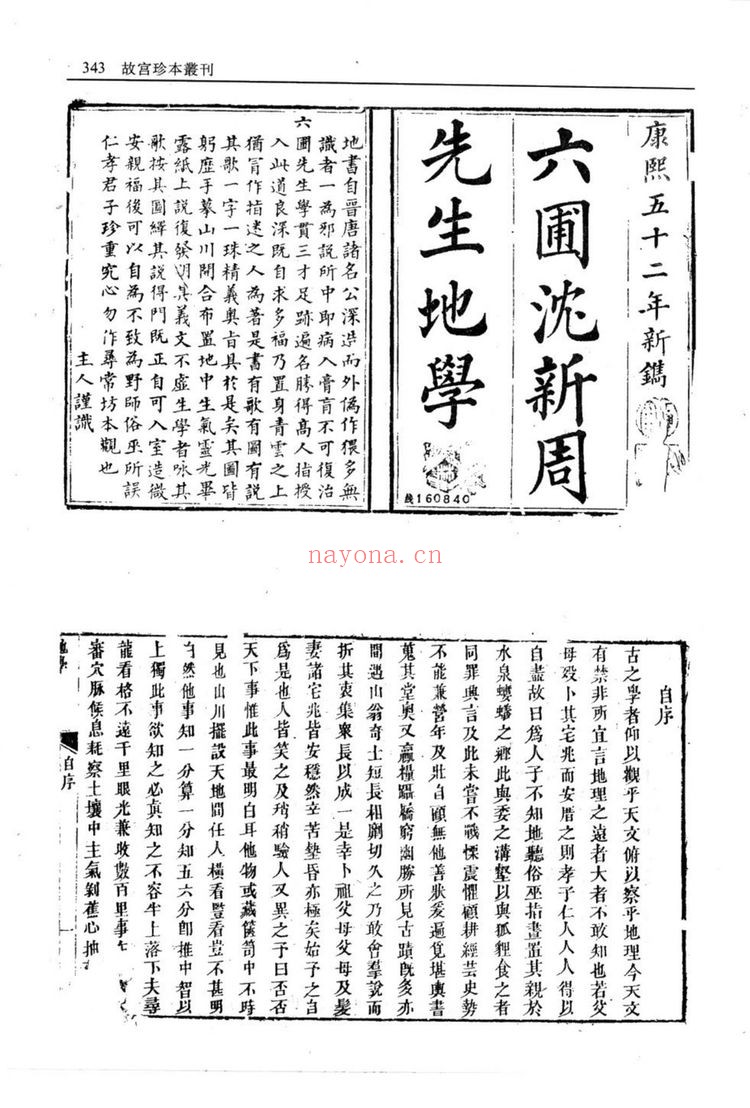 343 故宮珍本叢刊
康熙五十二年新鐫
六圃沈新周
先生地學
线160840
地書自晉唐諸名公深造而外偽作猥多無
識者一為邪說所中即病入膏肓不可復治
六圃先生學貫三才足跡遍名勝得高人指授
入此道良深既自求多福乃置身青雲之上
猶冐作指迷之人為著是書有歌有圖有說
其歌一字一珠精義奧旨具於是矣其圖皆
躬歷手摹山川開合布置地中生氣靈光畢
露紙上說復發明其義文不虛生學者咏其
歌按其圖繹其說得門既正自可入室造微
安親福後可以自為不致為野師俗巫所誤
仁孝君子珍重究心勿作尋常坊本觀也
主人謹識
nayona.cn
自序
古之學者仰以觀乎天文俯以察乎地理今天文
有禁非所宜言地理之遠者大者不敢知也若父
母歿卜其宅兆而安厝之則孝子仁人人人得以
自盡故曰爲人子不知地聽俗巫指畫置其親於
水泉螻蟻之鄉此與委之溝壑以與狐狸食之者
同罪興言及此未嘗不戰慄震懼顧耕經芸史勢
不能兼營年及壯自顧無他善狀爰遍覓堪輿書
蒐其堂奧又羸糧躡屩窮幽勝所見古蹟旣多亦
間遇山翁奇士短長相劘切久之乃敢會羣說而
折其衷集衆長以成一是幸卜祖父母父母及髮
妻諸宅兆皆安穩然辛苦墊昏亦極矣始予之自
爲是也人皆笑之及稍稍驗人又異之予曰否否
天下事惟此事最明白耳他物或藏篋笥中不時
見也山川擺設天地間任人橫看豎看豈不甚明
白然他事知一分算一分知五六分卽推中智以
上獨此事欲知之必真知之不容半上落下夫尋
龍看格不遠千里眼光兼收數百里事
審穴脉候息耗察土壤中主氣剝蕉心抽
地學
自序